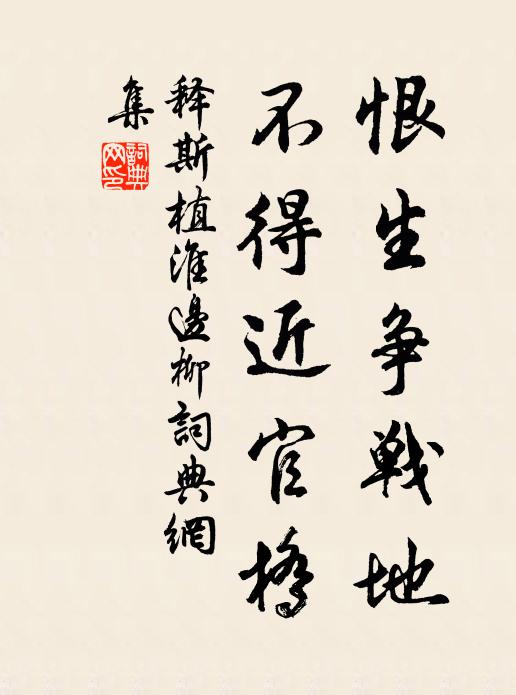 恨生争戦地
不得近官橋
释斯植淮邊柳詞典網
集
詞典网印